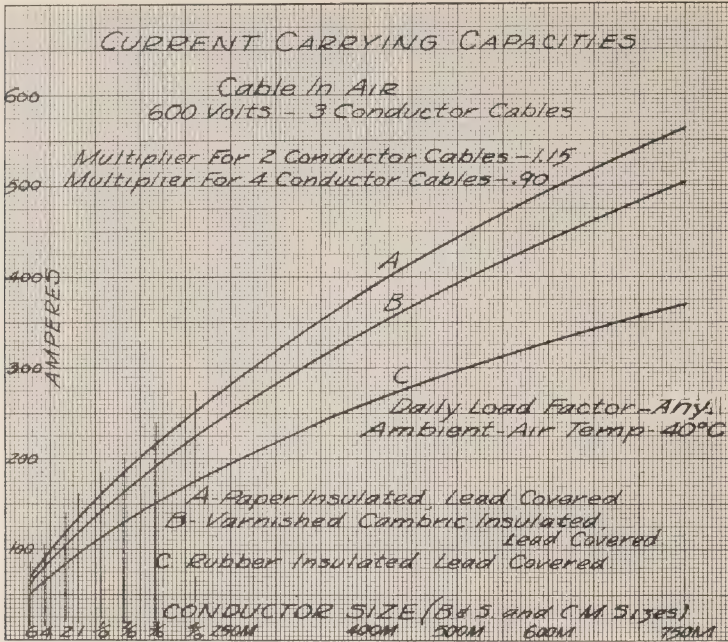 CURRENT CARRYING CAPACITIES
Cable In Air
600 Volts - 3 Conductor Cables
Multiplier For 2 Conductor Cables - 1.15
Multiplier For 4 Conductor Cables - .90
600
500
400
300
200
100
AMPERES
A
B
C
Daily Load Factor - Any
Ambient-Air Temp - 40°C
A - Paper Insulated, Lead Covered
B - Varnished Cambric Insulated,
Lead Covered
C Rubber Insulated Lead Covered
CONDUCTOR SIZE (B&S. and CM Sizes)
6 4 2 1 250M 400M 500M 600M 750M